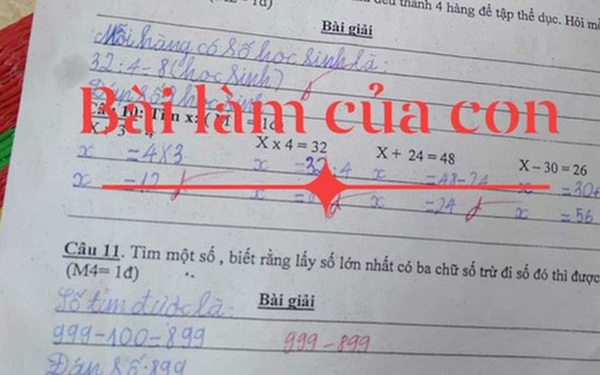 đều thành 4 hàng để tập thể dục. Hỏi mỗi
Bài giải
Mỗi hàng có số học sinh là:
32 : 4 = 8 (học sinh)
Bài làm của con
X x 4 = 32
X + 24 = 48
X – 30 = 26
x = 4 x 3
x = 32 : 4
x = 48 - 24
x = 30+
x = 12
x =
x = 24
x = 56
Câu 11. Tìm một số , biết rằng lấy số lớn nhất có ba chữ số trừ đi số đó thì được
(M4= 1đ)
Bài giải
Số tìm được là:
999 - 100 = 899
999 - 899
Đáp số: 899